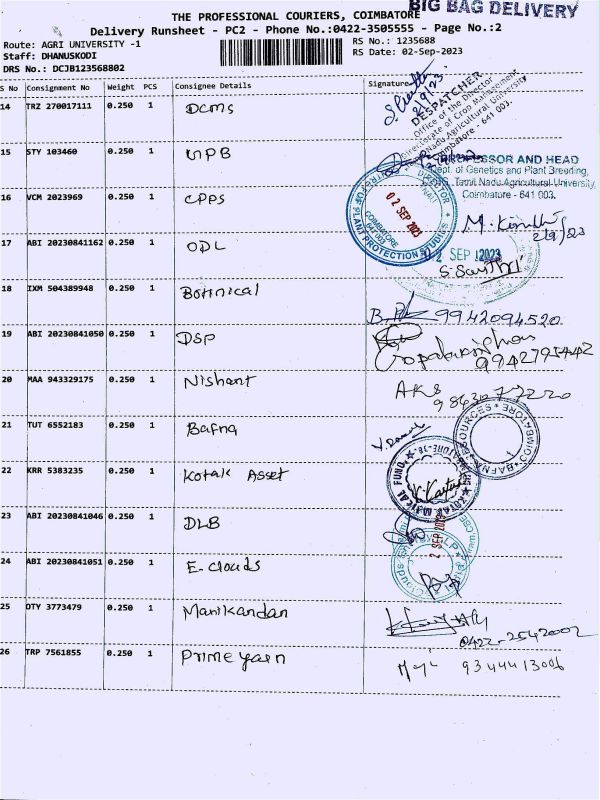 BIG BAG DELIVERY
THE PROFESSIONAL COURIERS, COIMBATORE
Delivery Runsheet - PC2 - Phone No.:0422-3505555 - Page No.:2
Route: AGRI UNIVERSITY -1
RS No.: 1235688
Staff: DHANUSKODI
RS Date: 02-Sep-2023
DRS No.: DCJB123568802
S No Consignment No Weight PCS Consignee Details Signature
14 TRZ 270017111 0.250 1 DCMS
2/9/23
DESPATCHER
Office of the Director
Directorate of Crop Management
Nadu Agricultural University
Coimbatore - 641 003.
15 STY 103460 0.250 1 UPB
PROFESSOR AND HEAD
Dept. of Genetics and Plant Breeding,
Tamil Nadu Agricultural University,
Coimbatore - 641 003.
16 VCM 2023969 0.250 1 CPPS
DIRECTOR
OF PLANT PROTECTION STUDIES
COIMBATORE
02 SEP 2023
2/9/23
17 ABI 20230841162 0.250 1 ODL
2 SEP 2023
18 IXM 504389948 0.250 1 Botinical
9942094520
19 ABI 20230841050 0.250 1 DSP
9942795442
20 MAA 943329175 0.250 1 Nishant
AKS
9863077220
21 TUT 6552183 0.250 1 Bafna
BAFNA RESOURCES
COIMBATORE
22 KRR 5383235 0.250 1 Kotak Asset
23 ABI 20230841046 0.250 1 DLB
2 SEP 2023
24 ABI 20230841051 0.250 1 E-clouds
25 OTY 3773479 0.250 1 Manikandan
0422-2542002
26 TRP 7561855 0.250 1 Prime yarn
9344413006